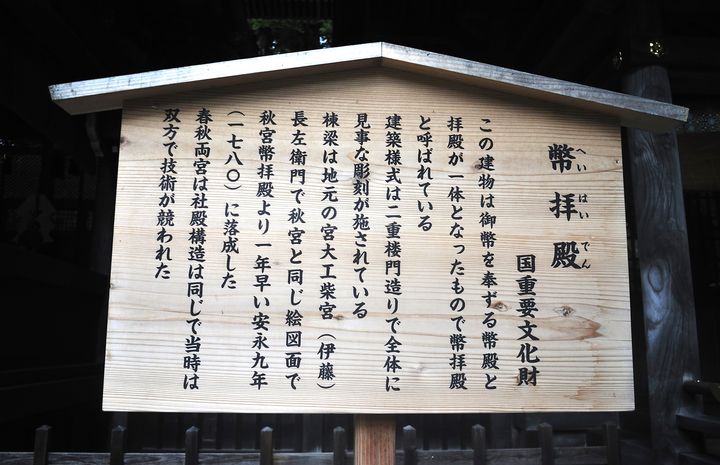 幣拝殿
へいはいでん
国重要文化財
この建物は御幣を奉ずる幣殿と
拝殿が一体となったもので幣拝殿
と呼ばれている
建築様式は二重楼門造りで全体に
見事な彫刻が施されている
棟梁は地元の宮大工柴宮（伊藤）
長左衛門で秋宮と同じ絵図面で
秋宮幣拝殿より一年早い安永九年
（一七八〇）に落成した
春秋両宮は社殿構造は同じで当時は
双方で技術が競われた